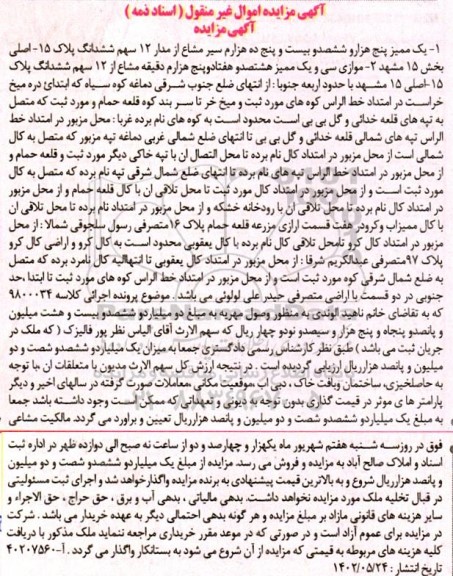 آگهی مزایده اموال غیر منقول (اسناد ذمه)
آگهی مزایده
۱- یک ممیز پنج هزارو ششصدو بیست و پنج ده هزارم سیر مشاع از مدار ۱۲ سهم ششدانگ پلاک ۱۵- اصلی
بخش ۱۵ مشهد ۲- موازی سی و یک ممیز هشتصدو هفتادوپنج هزارم دقیقه مشاع از ۱۲ سهم ششدانگ پلاک
۱۵-اصلی ۱۵ مشهد با حدود اربعه جنوبا : از انتهای ضلع جنوب شرقی دماغه کوه سیاه که ابتدائ دره میخ
خراست در امتداد خط الراس کوه های مورد ثبت و میخ خر تا سر بند کوه قلعه حمام و مورد ثبت که متصل
به تپه های قلعه خدائی و گل بی بی است محدود است به کوه های نام برده غربا : محل مزبور در امتداد خط
الراس تپه های شمالی قلعه خدائی و گل بی بی تا انتهای ضلع شمالی غربی دماغه تپه مزبور که متصل به کال
شمالی است از محل مزبور در امتداد کال نام برده تا محل التصال ان با تپه خاکی دیگر مورد ثبت و قلعه حمام و
از محل مزبور در امتداد خط الراس تپه های نام برده تا انتهای ضلع شمال شرقی تپه نام برده که متصل به کال
مورد ثبت است و از محل مزبور در امتداد کال مورد ثبت تا محل تلاقی ان با کال قلعه حمام و از محل مزبور
در امتداد کال نام برده تا محل تلاقی ان با رودخانه خشکه و از محل مزبور در امتداد نام برده تا محل تلاقی ان
با کال ممیزاب و کرودر هفت قسمت ارازی مزرعه قلعه حمام پلاک ۱۴ متصرفی رسول سلجوقی شمالا : از محل
مزبور در امتداد کال کرو تامحل تلاقی کال نام برده با کال یعقوبی محدود است به کال کرو و اراضی کال کرو
پلاک ۹۷ متصرفی عبدالکریم شرقا : از محل مزبور در امتداد کال یعقوبی تا انتهالیه کال نامرد برده که متصل
به ضلع شمال شرقی کوه مورد ثبت است و از محل مزبور در امتداد خط الراس کوه های مورد ثبت تا ابتدا ،حد
جنوبی در دو قسمت با اراضی متصرفی حیدر علی لولوئی می باشد . موضوع پرونده اجرائی کلاسه ۹۸۰۰۰۳۴
که به تقاضای خانم ناهید الوندی ، به منظور وصول مهریه به مبلغ دو میلیاردو ششصدو بیست و هشت میلیون
و پانصدو پنجاه و پنج هزار و سیصدو نودو چهار ریال که سهم الارث آقای الیاس نظر پور فالیزک ( که ملک در
جریان ثبت می باشد ) طبق نظر کارشناس رسمی دادگستری جمعا به میزان یک میلیاردو ششصدو شصت و دو
میلیون و پانصد هزارریال ارزیابی گردیده است . در نتیجه ارزش کل سهم الارث مدیون با متعلقات ان ،با توجه
به حاصلخیزی، ساختمان وبافت خاک ، دبی آب موقعیت مکانی ،معاملات صورت گرفته در سالهای اخیر و دیگر
پارامتر ها ی موثر در قیمت گذاری بدون توجه به دیونی و تعهداتی که ممکن است وجود داشته باشد جمعا
به مبلغ یک میلیاردو ششصدو شصت و دو میلیون و پانصد هزارریال تعیین و براورد می گردد. مالکیت مشاعی
فوق در روزسه شنبه هفتم شهریور ماه یکهزار و چهارصد و دو از ساعت نه صبح الی دوازده ظهر در اداره ثبت
اسناد و املاک صالح آباد به مزایده و فروش می رسد. مزایده از مبلغ یک میلیاردو ششصدو شصت و دو میلیون
و پانصد هزارریال شروع و به بالاترین قیمت پیشنهادی به برنده مزایده واگذارخواهد شد و اجرای ثبت مسئولیتی
در قبال تخلیه ملک مورد مزایده نخواهد داشت. بدهی مالیاتی ، بدهی آب و برق ، حق حراج ، حق الاجراء و
سایر هزینه های قانونی مازاد بر مبلغ مزایده و هر گونه بدهی احتمالی دیگر به عهده خریدار می باشد . شرکت
در مزایده برای عموم آزاد است و در صورتی که در موعد مقرر خریداری مراجعه ننماید ملک مذکور با دریافت
کلیه هزینه های مربوطه به قیمتی که مزایده از آن شروع می شود به بستانکار واگذار می گردد . آ-۴۰۲۰۷۵۶۰
تاریخ انتشار : ۱۴۰۲/۰۵/۲۴